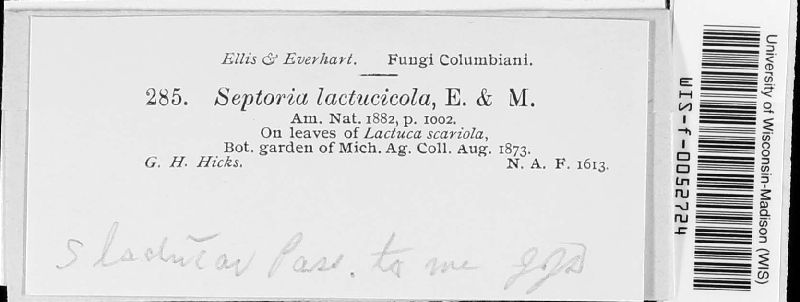 Ellis & Everhart. Fungi Columbiani.
285. Septoria lactucicola, E. & M.
Am. Nat. 1882, p. 1002.
On leaves of Lactuca scariola,
Bot. garden of Mich. Ag. Coll. Aug. 1873.
G. H. Hicks. N. A. F. 1613.
S Pass. to me
University of Wisconsin-Madison (WIS)
WIS-f-0052724